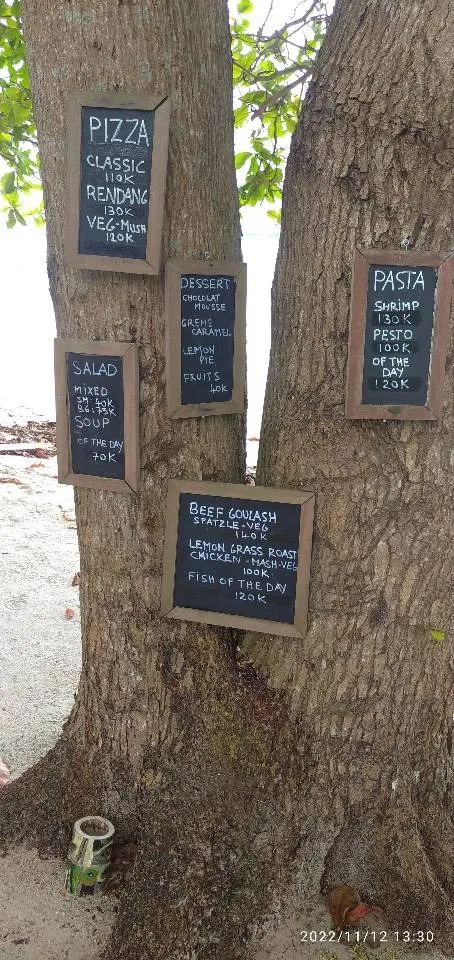 PIZZA
CLASSIC
110K
RENDANG
130K
VEG-MUSH
120K
DESSERT
CHOCOLAT
MOUSSE
CREME
CARAMEL
LEMON
PIE
FRUITS
40K
PASTA
SHRIMP
130K
PESTO
100K
OF THE
DAY
120K
SALAD
MIXED
SM: 40K
BG: 75K
SOUP
OF THE DAY
70K
BEEF GOULASH
SPATZLE-VEG
140K
LEMON GRASS ROAST
CHICKEN - MASH-VEG
100K
FISH OF THE DAY
120K
2022/11/12 13:30